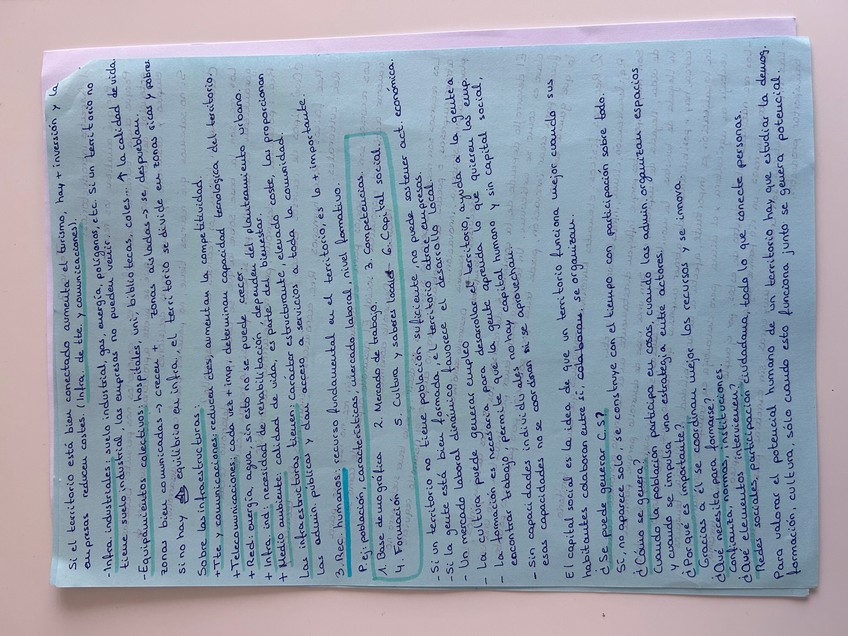 Si el territorio está bien conectado aumenta el turismo, hay + inversión y la
empresas reducen costes. (Infra. de tte. y comunicaciones).
- Infra. industriales: suelo industrial, gas, energía, polígonos, etc. Si un territorio no
tiene suelo industrial, las empresas no pueden venir.
- Equipamientos colectivos: hospitales, uni, bibliotecas, coles... ↑ la calidad de vida.
zonas bien comunicadas → crecen + zonas aisladas → se despueblan.
si no hay equilibrio en infra, el territorio se divide en zonas ricas y pobres
Sobre las infraestructuras:
+ Tte y comunicaciones: reducen ctes, aumentan la competitividad.
+ Telecomunicaciones, cada vez + imp, determinan capacidad tecnológica del territorio.
+ Red: energía agua, sin esto no se puede crecer.
+ Infra. indi necesidad de rehabilitación, dependen del planteamiento urbano.
+ Medio ambiente: calidad de vida, es parte del bienestar.
Las infraestructuras tienen: carácter estructurante, elevado coste, las proporcionan
las admin. públicas y dan acceso a servicios a toda la comunidad.
3. Rec. humanos: recurso fundamental en el territorio, es lo + importante.
P. ej: población, características, mercado laboral, nivel formativo.
1. Base demográfica 2. Mercado de trabajo 3. Competencias.
4. Formación 5. Cultura y saberes 6. Capital social.
- Si un territorio no tiene población suficiente, no puede sostener act. económica.
- Si la gente está bien formada, el territorio atrae empresas.
- Un mercado laboral dinámico favorece el desarrollo local.
- La cultura puede generar empleo
- La formación es necesaria para desarrollar el territorio, ayuda a la gente a
encontrar trabajo, permite que la gente aprenda lo que quieren las emp.
- Sin capacidades individuales no hay capital humano y sin capital social,
esas capacidades no se coordinan ni se aprovechan.
El capital social es la idea de que un territorio funciona mejor cuando sus
habitantes colaboran entre sí, colaboran, se organizan.
¿Se puede generar C.S?
Sí, no aparece solo, se construye con el tiempo: con participación sobre todo.
¿Cómo se genera?
Cuando la población participa en cosas, cuando las admin. organizan espacios
y cuando se impulsa una estrategia entre actores.
¿Porque es importante?
Gracias a él se coordinan mejor los recursos y se innova.
¿Qué necesita para formarse?
Confianza, normas, instituciones.
¿Qué elementos intervienen?
Redes sociales, participación ciudadana, todo lo que conecte personas.
Para valorar el potencial humano de un territorio, hay que estudiar la demog.
formación, cultura, sólo cuando esto funciona junto se genera potencial.